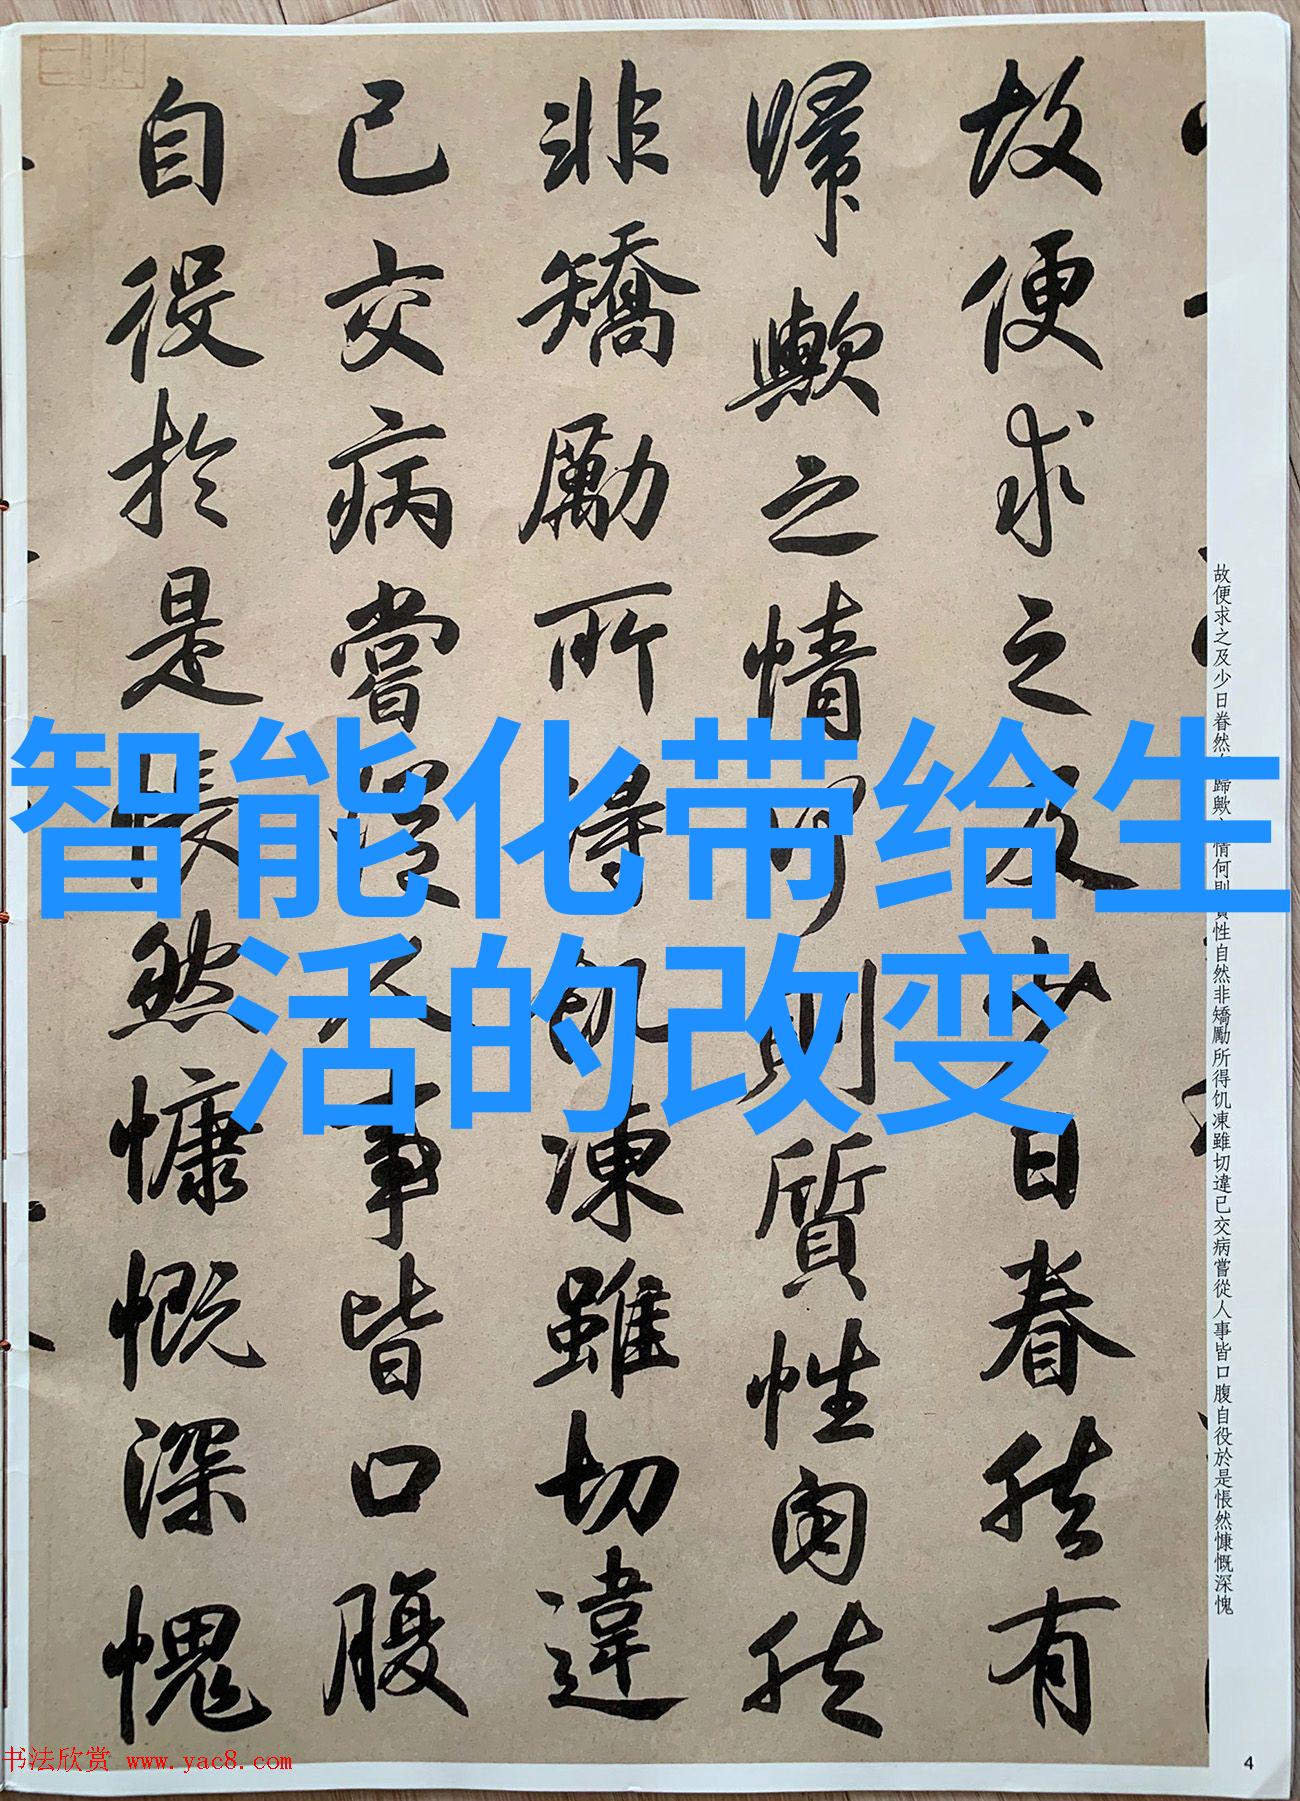 智能化带给生
活的改变
故便求之及少日眷然有
歸歟之情何則質性自然
非矯勵所得飢凍雖切違
已交病嘗從人事皆口腹
自役於是悵然慷慨深愧
故便求之及少日眷然有歸歟之情何則質性自然非矯勵所得饥凍雖切違已交病嘗從人事皆口腹自役於是悵然慷慨深愧
书法欣赏 www.yac8.com
4